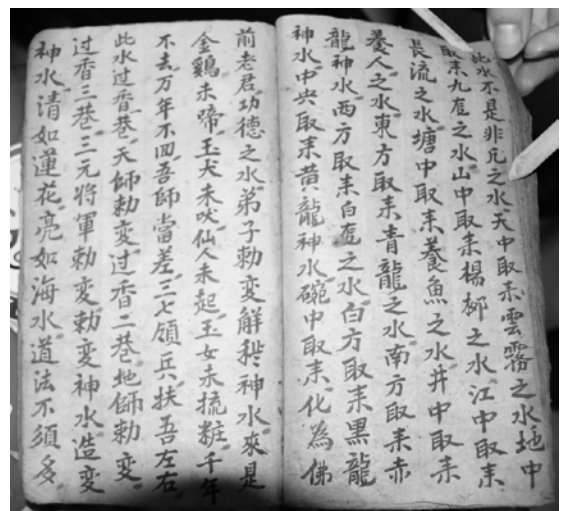 此水不是非凡之水天中取来雲霧之水地中
取来九庬之水山中取来楊柳之水江中取来
長流之水塘中取来養魚之水井中取来
養人之水東方取来青龍之水南方取来赤
龍神水西方取来白庬之水白方取来黑龍
神水中央取来黄龍神水碗中取来化為佛
前老君功德之水弟子勅變解秽神水來是
金鷄未啼玉犬未吠仙人未起玉女未梳粧千年
不去万年不回吾師當差三七領兵扶吾左右
此水过香巷天師勅變过香二巷地師勅變
过香三巷三元將軍勅變勅變神水造變
神水清如蓮花亮如海水道法不須多